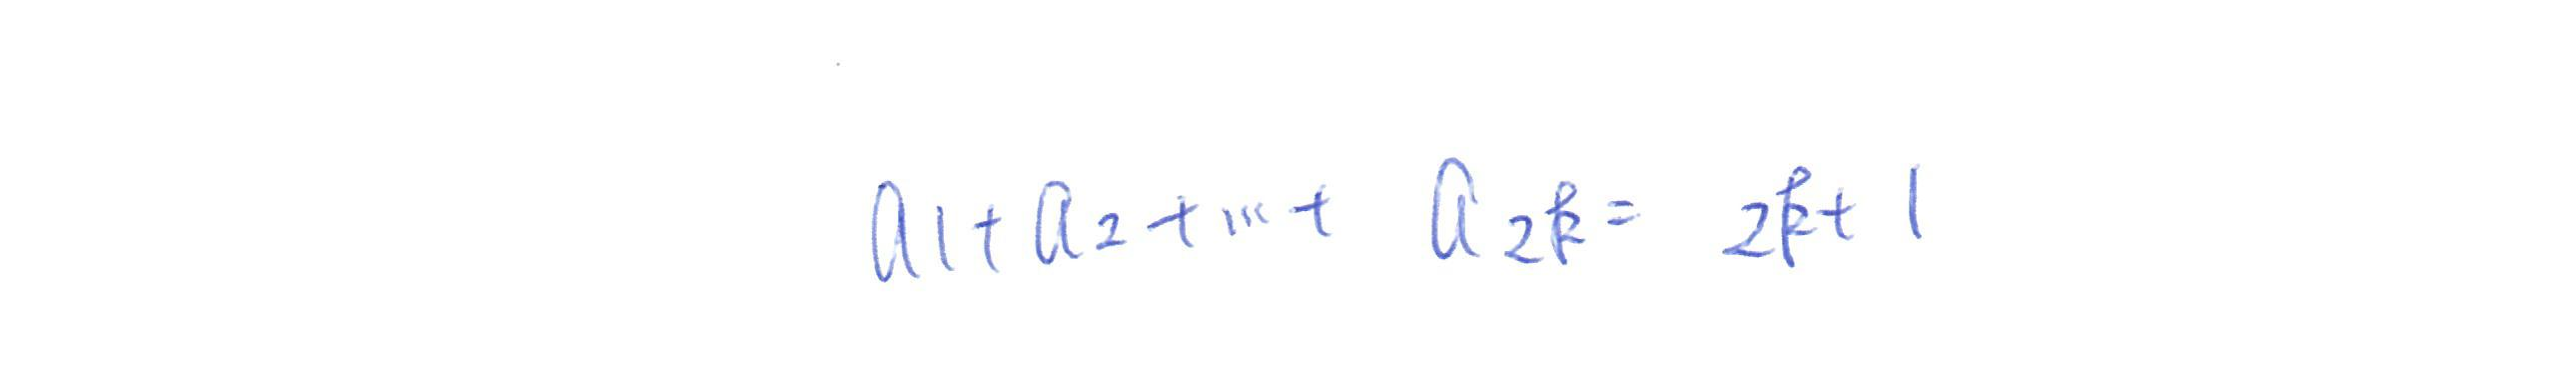 a1+a2+…+ a2k= 2k+1